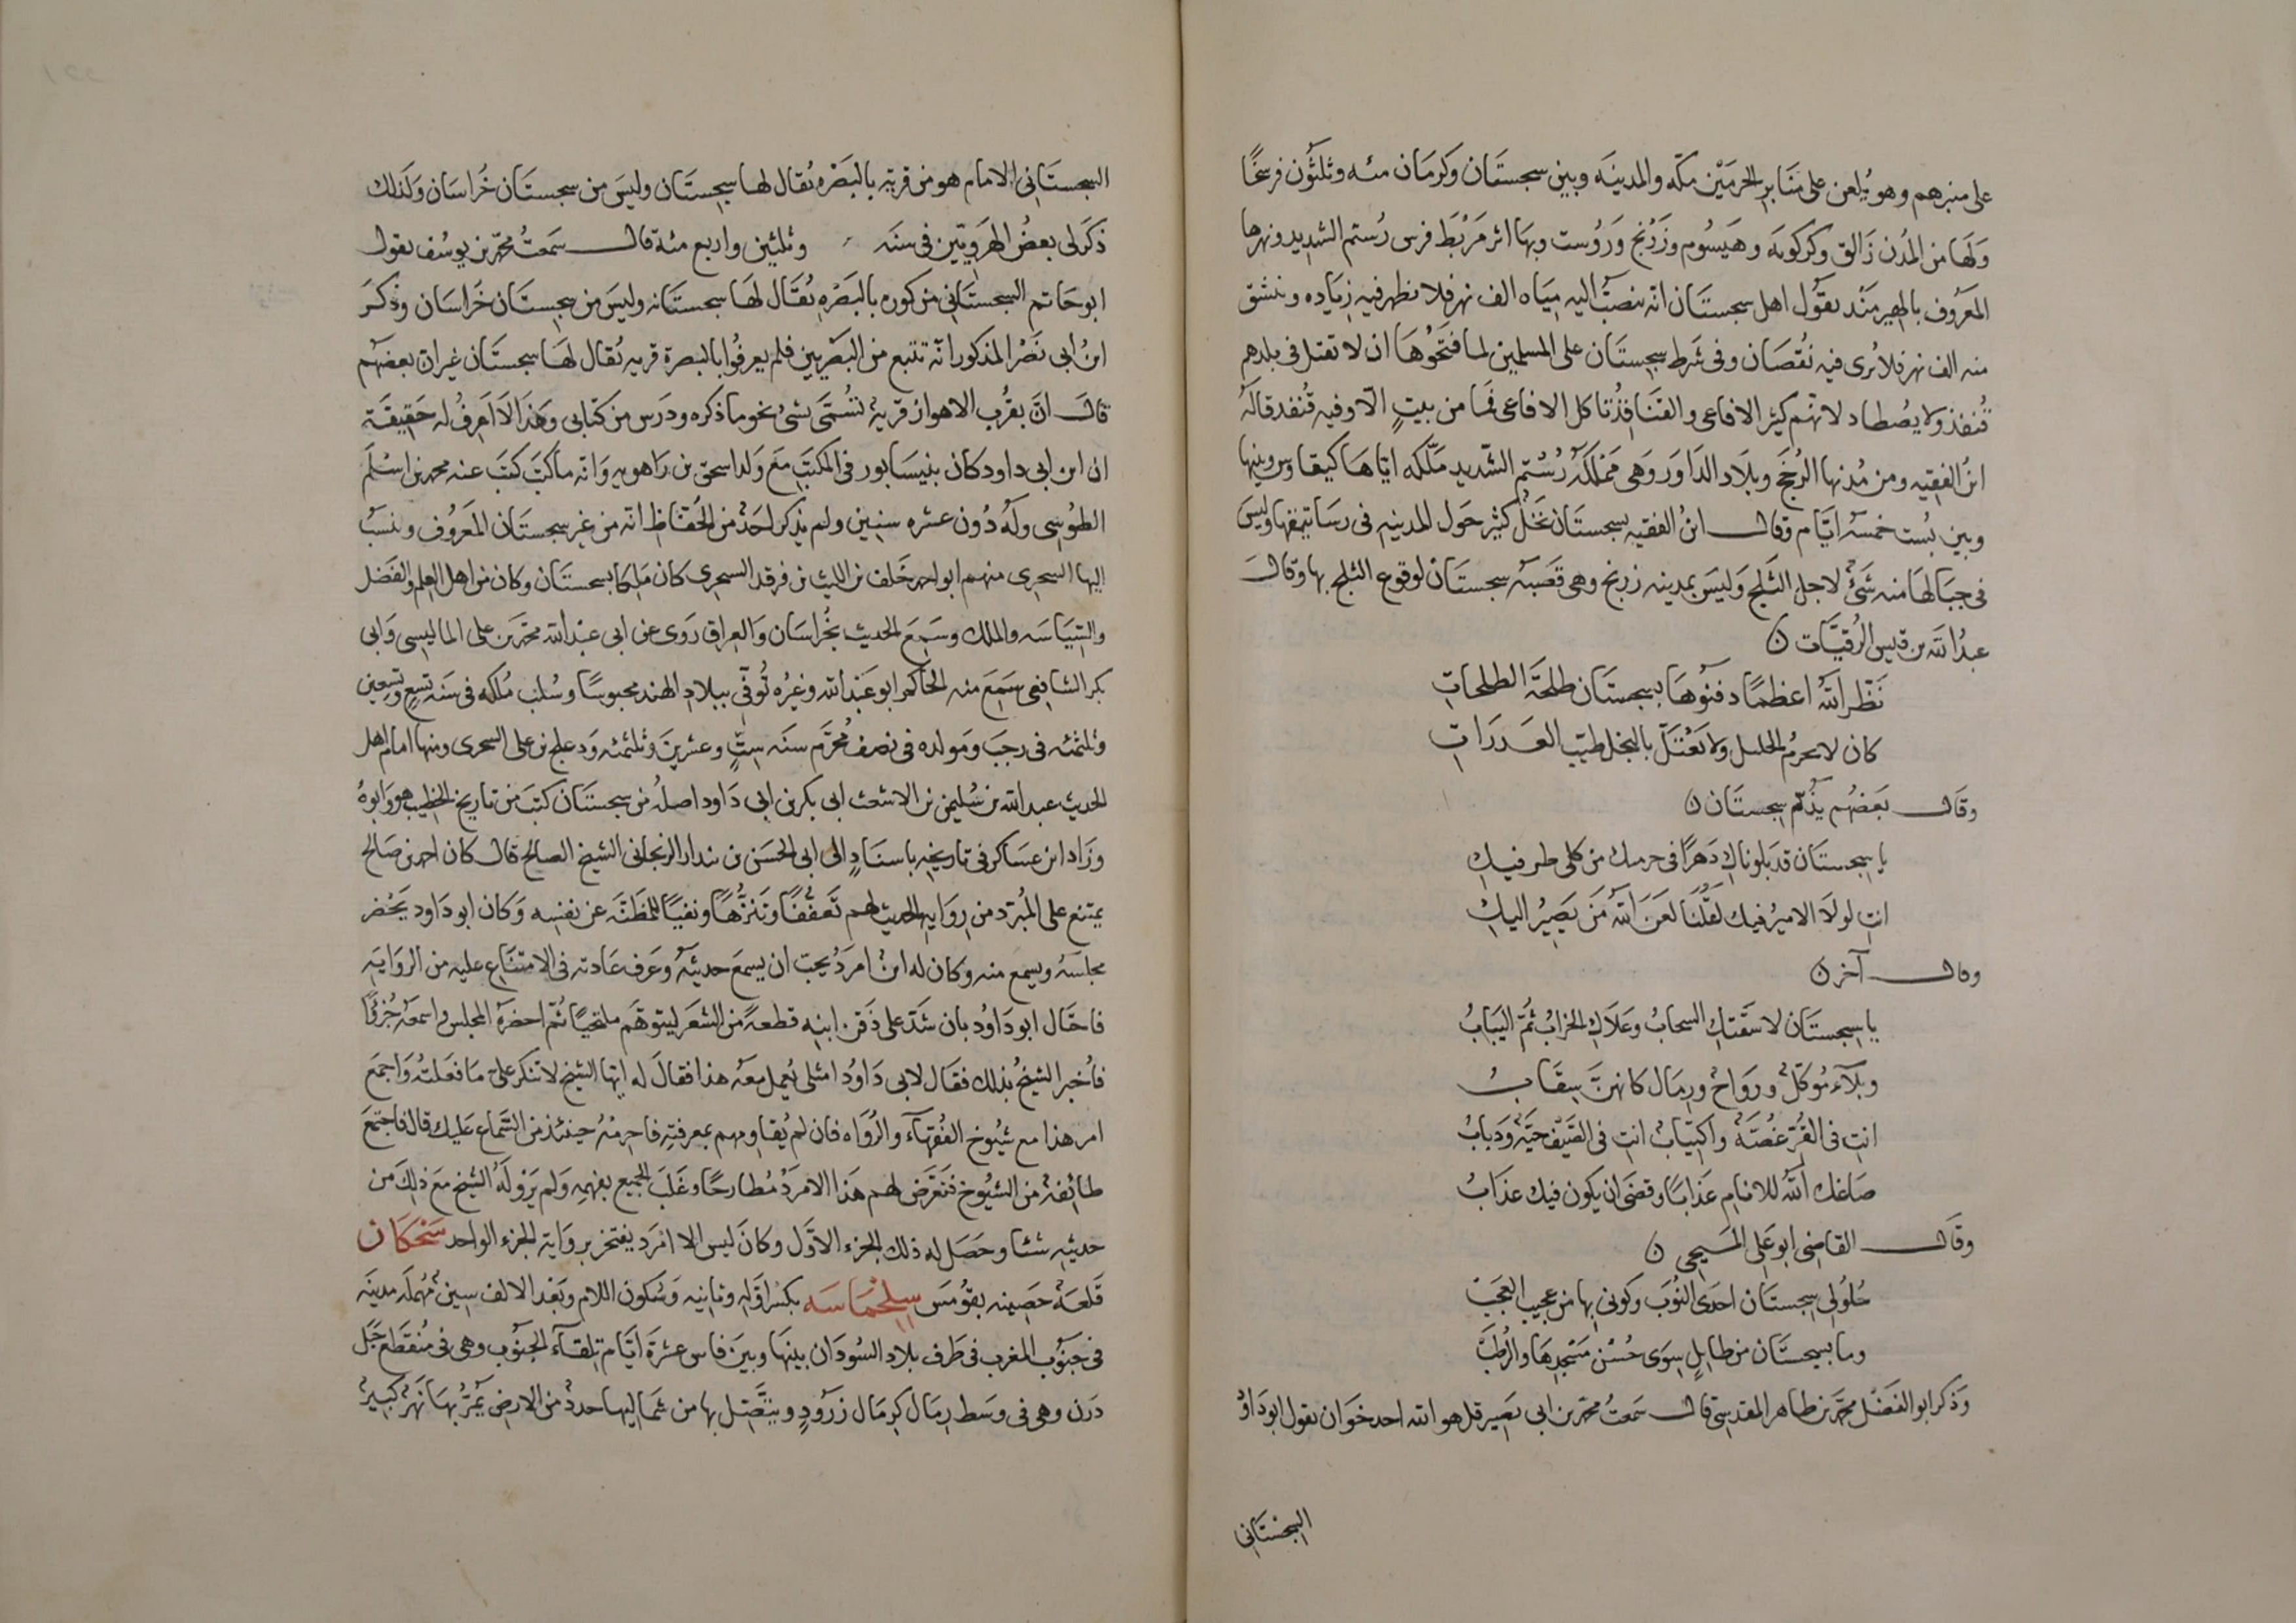 على منبرهم وهو يُلعن على مَنَابر الحرمَيْن مكّه والمدينَه وبين سجستَان وكرمَان مئه وثلثُون فرسخًا
وَلهَا من المُدن زَالق وكركويَه وهَيسُوم وزَرَنج وَرُوست وبهَا اثر مَرْبَط فرس رُستم الشديد ونهرها
المَعرُوف بالهيرمَنْد يقوُل اهل سجستَان انّه ينصَبّ اليه مِيَاه الف نهر فلا يظهر فيه زيَاده وينشق
منه الف نهر فلا يُرى فيه نُقصَان وفى شَرط سجِستَان على المسلمين لما فتَحوُهَا ان لا تقتل فى بلدهم
قُنفذ ولا يصُطاد لانّهُم كثير الافاعى والقنَافِذُ تاكل الافاعى فَما من بيتٍ الّا وفيه قُنفد قالَهُ
ابنُ الفقيِه ومن مُدنها الرُخَّج وبلَاد الدَاوَر وَهى مَمْلكَةُ رُسْتُم الشّديد مَلّكه ايّاهَا كيقاوس وبينها
وبين بُست خمسَه ايَّام وقال ابنُ الفقيه بسجستَان نَخْلٌ كثير حَول المدينه فى رسَاتيقها وليسَ
فى جبَالهَا منه شَىْء لاجل الثَلج وَليسَ بمدينه زرنج وهى قَصَبَة سجستَان لوقوع الثلج بها وقالَ
عبدُ الله بن قيس الرُقيّات ن
نَضّر اللهُ اعظمًا دفنَوهَا بسجستَان طلحَةَ الطلحاتِ
كان لا يحرِمُ الخليل ولا يَعْتَلّ بالبخل طيّبَ العَدرَاتِ
وقَال بَعضهُم يذُمّ سجستَان ن
يا سِجستَان قد بَلوناكِ دَهرًا فى حرميك من كلى طرفيكِ
انتِ لولَا الاميرُ فيك لَقُلْنَا لعَنَ اللهُ مَنَ يَصيِرُ اليكِ
وقال آخر ن
يا سِجستَان لا سَقَتكِ السحَابُ وعَلَاكِ الخرابُ ثُمّ اليَبابُ
وبَلَآءٌ مُوكّلٌ ورِوَاحٌ ورِمَال كانهنّ سِقَابُ
انتِ فى القُرّ غُصَةٌ واكتئابٌ انتِ فى الصَيف حيّةٌ وَدبابُ
صَاغك اللهُ للانام عَذابًا وقضَى ان يكون فيك عذَابُ
وقَال القاضى ابو عَلى المَسيحى ن
حُلُولى سِجستَان احدَى النُوَب وكونى بها من عجيب العجَبْ
وما بسجستَان من طايلٍ سِوَى حُسْن مَسْجدِهَا والرُطَبْ
وَذكر ابو الفَضْل محمّد بن طاهر المقدسىّ قال سَمعتُ محمّد بن ابى نصير قل هو الله احد خوَان يقول ابو دَاوُد
السجستَانى
السجستَانى الامام هو من قريَه بالبَصْره يُقال لها سجِستَان وليسَ من سجستَان خُراسَان وَكذلك
ذكَرَ لى بعضُ الهَرويّين فى سنَه وثلثين واربع مئة قال سَمعتُ محمّد بن يوسُف يقول
ابو حَاتم السجستَانى من كوره بالبَصْره يُقَال لهَا سجستَانه وليسَ من سجستَان خَراسَان وذكَرَ
ابنُ ابى نَصْر المذكور انّه تتبع من البَصْريين فلم يعرفوُا بالبصرة قريه يُقال لهَا سجستَان غير ان بعضهُم
قالَ انّ بقُرب الاهواز قريةٌ تُسُمَّى بشىءٍ نحو ما ذكره ودَرس من كتابى وَهذَا لَا اَعرفُ له حَقيقَة
ان ابن ابى داود كان بنيسَابور فى المكتَب مَع وَلد اسحق بن رَاهويه وَانّه مَا كتبَ كتبَ عنه محمد بن اسْلَم
الطوُسِى ولَهُ دُون عشره سنِين ولم يذكر احَدٌ من الحُفّاظ انّه من غير سجستَان المَعرُوف ونسَبْ
اليها السجزى منهم ابو احمد خَلف بن الليث بن فرقد السجزى كان مَلِكًا بسجستَان وكان من اهل العِلم والفَضل
والسّيَاسَه والملك وسَمِعَ الحديث بخُراسَان وَالعراق رَوى عن ابى عبْد الله محمّد بن على الماليسى وَابى
بكر الشافعى سَمِعَ منه الحَاكم ابو عَبْد الله وغيرُه تُوفّى ببلَادِ الهند محبوسًا وسُلب مُلكه فى سَنَة تسعٍ وتِسعين
وثلثمئه فى رجبَ وَمَولده فى نصف مُحرَّم سنَه ستٍّ وعشرينَ وثلثمئه وَدعلج بن على السجزى ومنها امام اهل
الحديث عبد الله بن سُليمن بن الاشعث ابى بكر بن ابى دَاود اصلُه من سجستَان كتبَ من تاريخ الخطِيب هو وَابوُهُ
وزَاد ابن عسَاكر فى تاريخِه باسنَادٍ الى ابى الحسَن بن بندار الزنجانى الشيخ الصالح قال كان احمد بن صَالح
يمتنع على المُردِ من روَايه الحديث لهم تَعفّفًا وتَنزّهًا ونفيًا للمَظَنّه عن نفسِه وَكان ابو دَاود يَحْضر
مجلسَهُ ويسمع منه وكان له ابنٌ امرَدُ يحبّ ان يسمعَ حديثَهُ وعَرف عَادته فى الامتناع عليه من الروَايه
فاحتَال ابو دَاوُد بان شَدّ على ذَقن ابنِه قطعةً من الشعَر ليتوهّم ملتحيًا ثُمّ احضرَهُ المجلس واسمعَهُ جُزءًا
فاُخبر الشيخُ بذلك فقال لابى دَاوُد امثلى يُعمل معَهُ هذا فقالَ له ايّها الشيخ لا تنكر علىّ مَا فعَلتُه وَاجمَعْ
امرَ هذا مع شيُوخ الفُقهَآء والرُوَاه فان لم يُقاومهم بمعرفتِه فاحرِمْهُ حينئذ من السَّماع عَليك قال فاجتمَعَ
طائفةٌ من الشيُوخ فتَعرّض لهم هَذا الامرَدُ مُطارحًا وغَلَبَ الجميع بفهمِه وَلم يَرْوِ لَهُ الشيخ مَعَ ذلِكَ من
حديثِه شئا وحَصَل له ذلك الجزء الاوّل وكانَ ليس الا امرَد يفتخر بروَاية الجزء الواحد سَنْجكَان
قَلعَةٌ حَصِينه بقوُمسَ سِجِلْمَاسَه بكسْر اوّلِه وثانِيه وَسُكون اللام وبَعْد الالف سِينٌ مُهملَه مدينَه
فى جنوُب المغرب فى طَرف بلَاد السُودَان بينهَا وبينَ فاس عشرَة ايّام تِلقَآء الجنوُب وهى فى مُنقَطع جَبل
دَرن وهى فى وسَط رِمَال كرِمَال زَرُودٍ ويتَّصِل بها من شَمَاليهَا جددٌ من الارض يَمُرّ بهَا نَهرٌ كبيرٌ